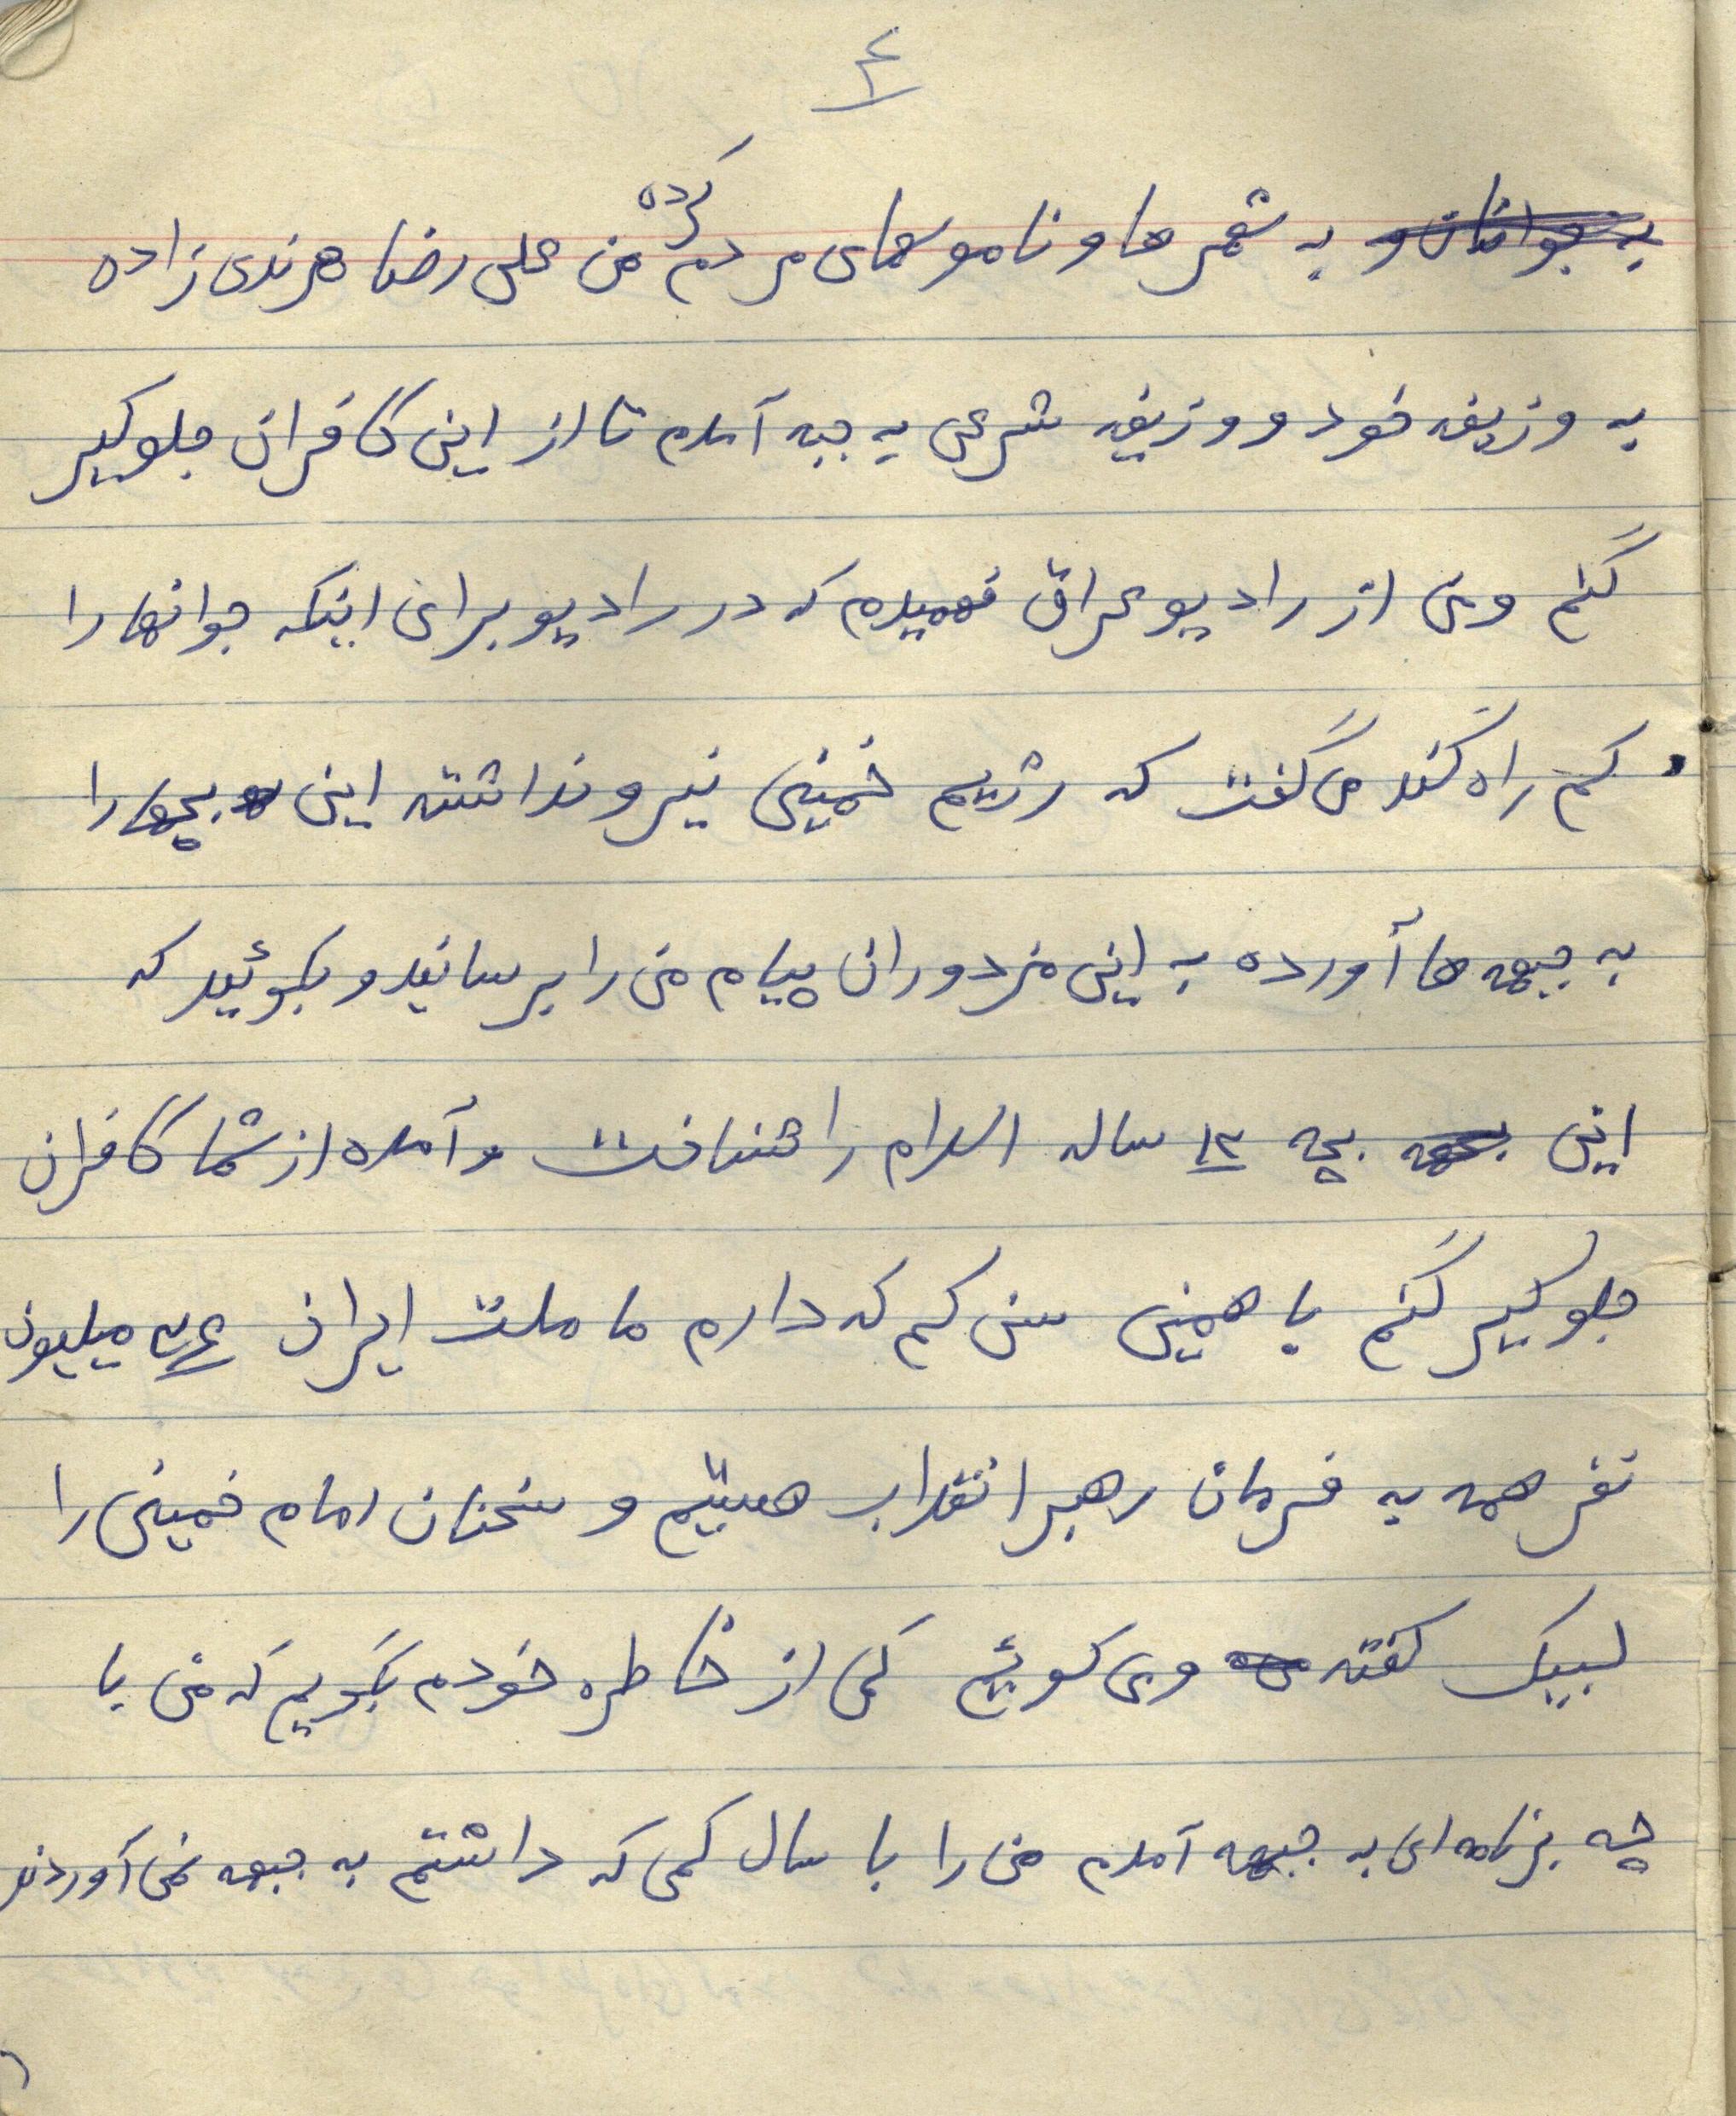 ٤
به شهرها و ناموسهای مردم کرده من علی رضا هرندی زاده
به وزیفه خود و وزیفه شرعی به جبه آمدم تا از این کافران جلوگیر
کنم وی از رادیو عراق فهمیدم که در رادیو برای اینکه جوانها را
کم راه کند می گفت که رژیم خمینی نیرو نداشته این بچها را
به جبهه ها آورده به این مزدوران پیام من را برسانید و بگوئید که
این بچه ۱۳ ساله اسلام را شناخت و آمده از شما کافران
جلوگیر کنم با همین سن کم که دارم ما ملت ایران میلیون
نفر همه به فرمان رهبر انقلاب هستیم و سخنان امام خمینی را
لبیک گفته و می گوئیم کمی از خاطره خودم بگویم که من با
چه برنامه ای به جبهه آمدم من را با سال کمی که داشتم به جبهه نمی آوردند